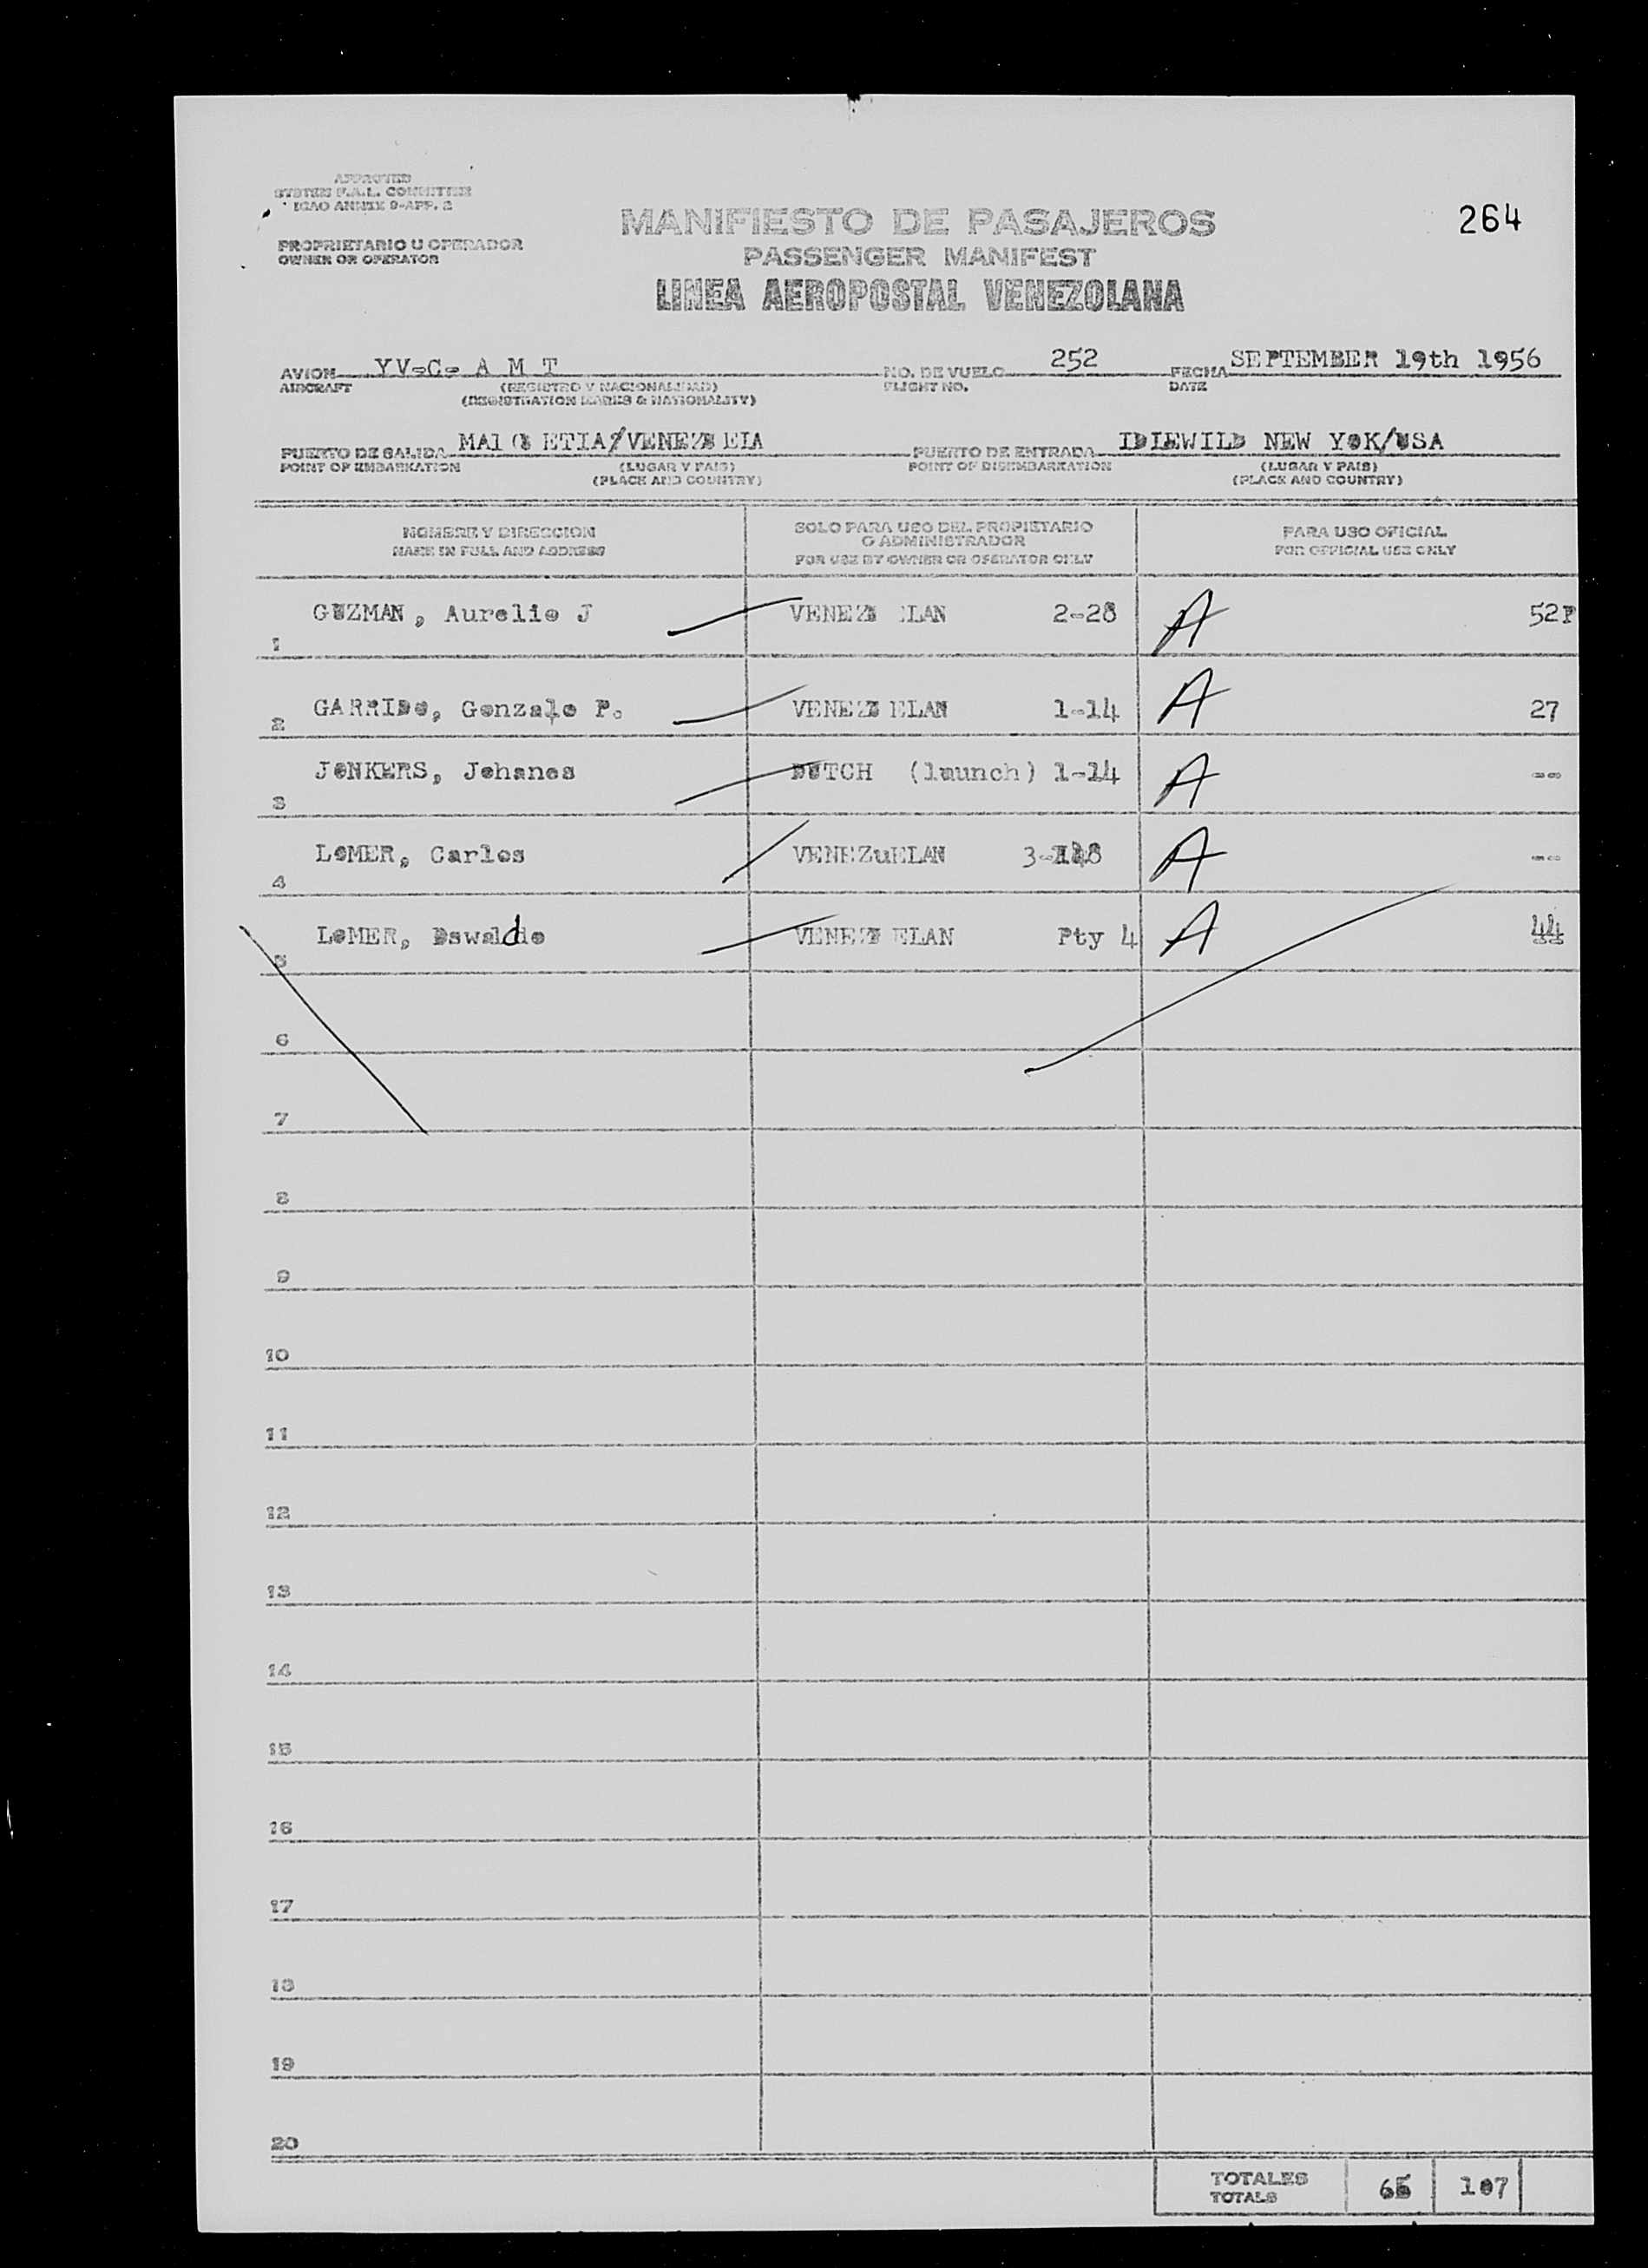 APPROVED
SYSTEM F.A.L. COMMITTEE
ICAO ANNEX 9-APP. 2
264
MANIFIESTO DE PASAJEROS
PROPRIETARIO U OPERADOR
OWNER OR OPERATOR
PASSENGER MANIFEST
LINEA AEROPOSTAL VENEZOLANA
AVION YV-C- A M T NO. DE VUELO 252 FECHA SEPTEMBER 19th 1956
AIRCRAFT (REGISTRO Y NACIONALIDAD) FLIGHT NO. DATE
(REGISTRATION MARKS & NATIONALITY)
PUERTO DE SALIDA PUERTO DE ENTRADA IDLEWILD NEW YOK/USA
POINT OF EMBARKATION (LUGAR Y PAIS) POINT OF DISEMBARKATION (LUGAR Y PAIS)
(PLACE AND COUNTRY) (PLACE AND COUNTRY)
NOMBRE Y DIRECCION SOLO PARA USO DEL PROPIETARIO O ADMINISTRADOR PARA USO OFICIAL
NAME IN FULL AND ADDRESS FOR USE BY OWNER OR OPERATOR ONLY FOR OFFICIAL USE ONLY
1 GUZMAN, Aurelio J VENEZUELAN 2-28 A 52P
2 GARRIDo, Gonzalo P. VENEZUELAN 1-14 A 27
3 JoNKERS, Johanes DUTCH (launch) 1-14 A --
4 LoMER, Carlos VENEZuELAN A --
5 LoMER, Oswaldo VENEZUELAN Pty 4 A 44
6
7
8
9
10
11
12
13
14
15
16
17
18
19
20
TOTALES
TOTALS 107